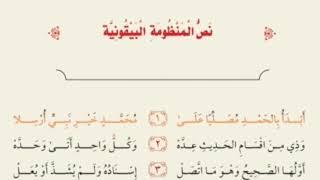 نَصُّ الْمَنْظُومَةِ الْبَيْقُونِيَّةِ
أَبْدَأُ بِالْحَمْدِ مُصَلِّيًا عَلَىٰ ﴿١﴾ مُحَمَّدٍ خَيْرِ نَبِيٍّ أُرْسِلَا
وَذِي مِنَ اقْسَامِ الْحَدِيثِ عِدَّهْ ﴿٢﴾ وَكُلُّ وَاحِدٍ أَتَىٰ وَحَدَّهْ
أَوَّلُهَا الصَّحِيحُ وَهْوَ مَا اتَّصَلْ ﴿٣﴾ إِسْنَادُهُ وَلَمْ يُشَذَّ أَوْ يُعَلْ